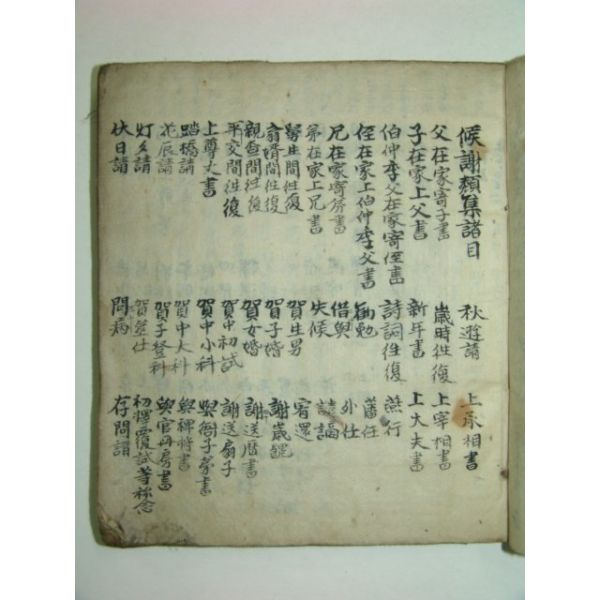 候謝類集諸目
父在家寄子書
子在家上父書
伯仲季父在家寄侄書
侄在家上伯仲季父書
兄在家寄弟書
弟在家上兄書
舅生間徃復
翁婿間徃復
親査間徃復
平交間徃復
上尊丈書
踏橋請
花辰請
灯夕請
伏日請
秋遊請
歳時徃復
新年書
詩詞徃復
勉
借與
失候
賀生男
賀子婚
賀女婚
賀中初試
賀中小科
賀中大科
賀子登科
賀筮仕
問病
上丞相書
上宰相書
上大夫書
燕行
藩任
外仕
謫
宥還
謝歳饌
謝送曆書
謝送扇子
與衙子弟書
與裨將書
與官冊房書
初覆試等念
存問請